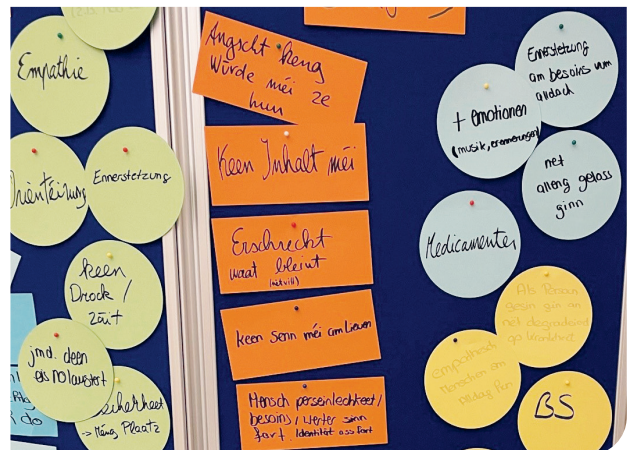 Empathie
Orientéirung
Ennerstetzung
keen
Drock /
Zäit
jmd. deen
eis nolauschtert
-> Méng Plaatz
do
Angscht keng
Würde méi ze
hun
Keen Inhalt méi
Erschreckt
waat bleiwt
(nëtvill)
keen Senn méi am Liewen
Mensch perséinlechkeet/
besoins / Werter sinn
fort. Identitéit ass fort
Ennerstetzung
am besoins vum
alldach
+ emotionen
(musik, erënnerungen)
net
alleng geloss
ginn
Medicamenter
Als Persoun
gesin gin an
net desgradéiert
op Krankheet
Empathesch
Menschen em
BS